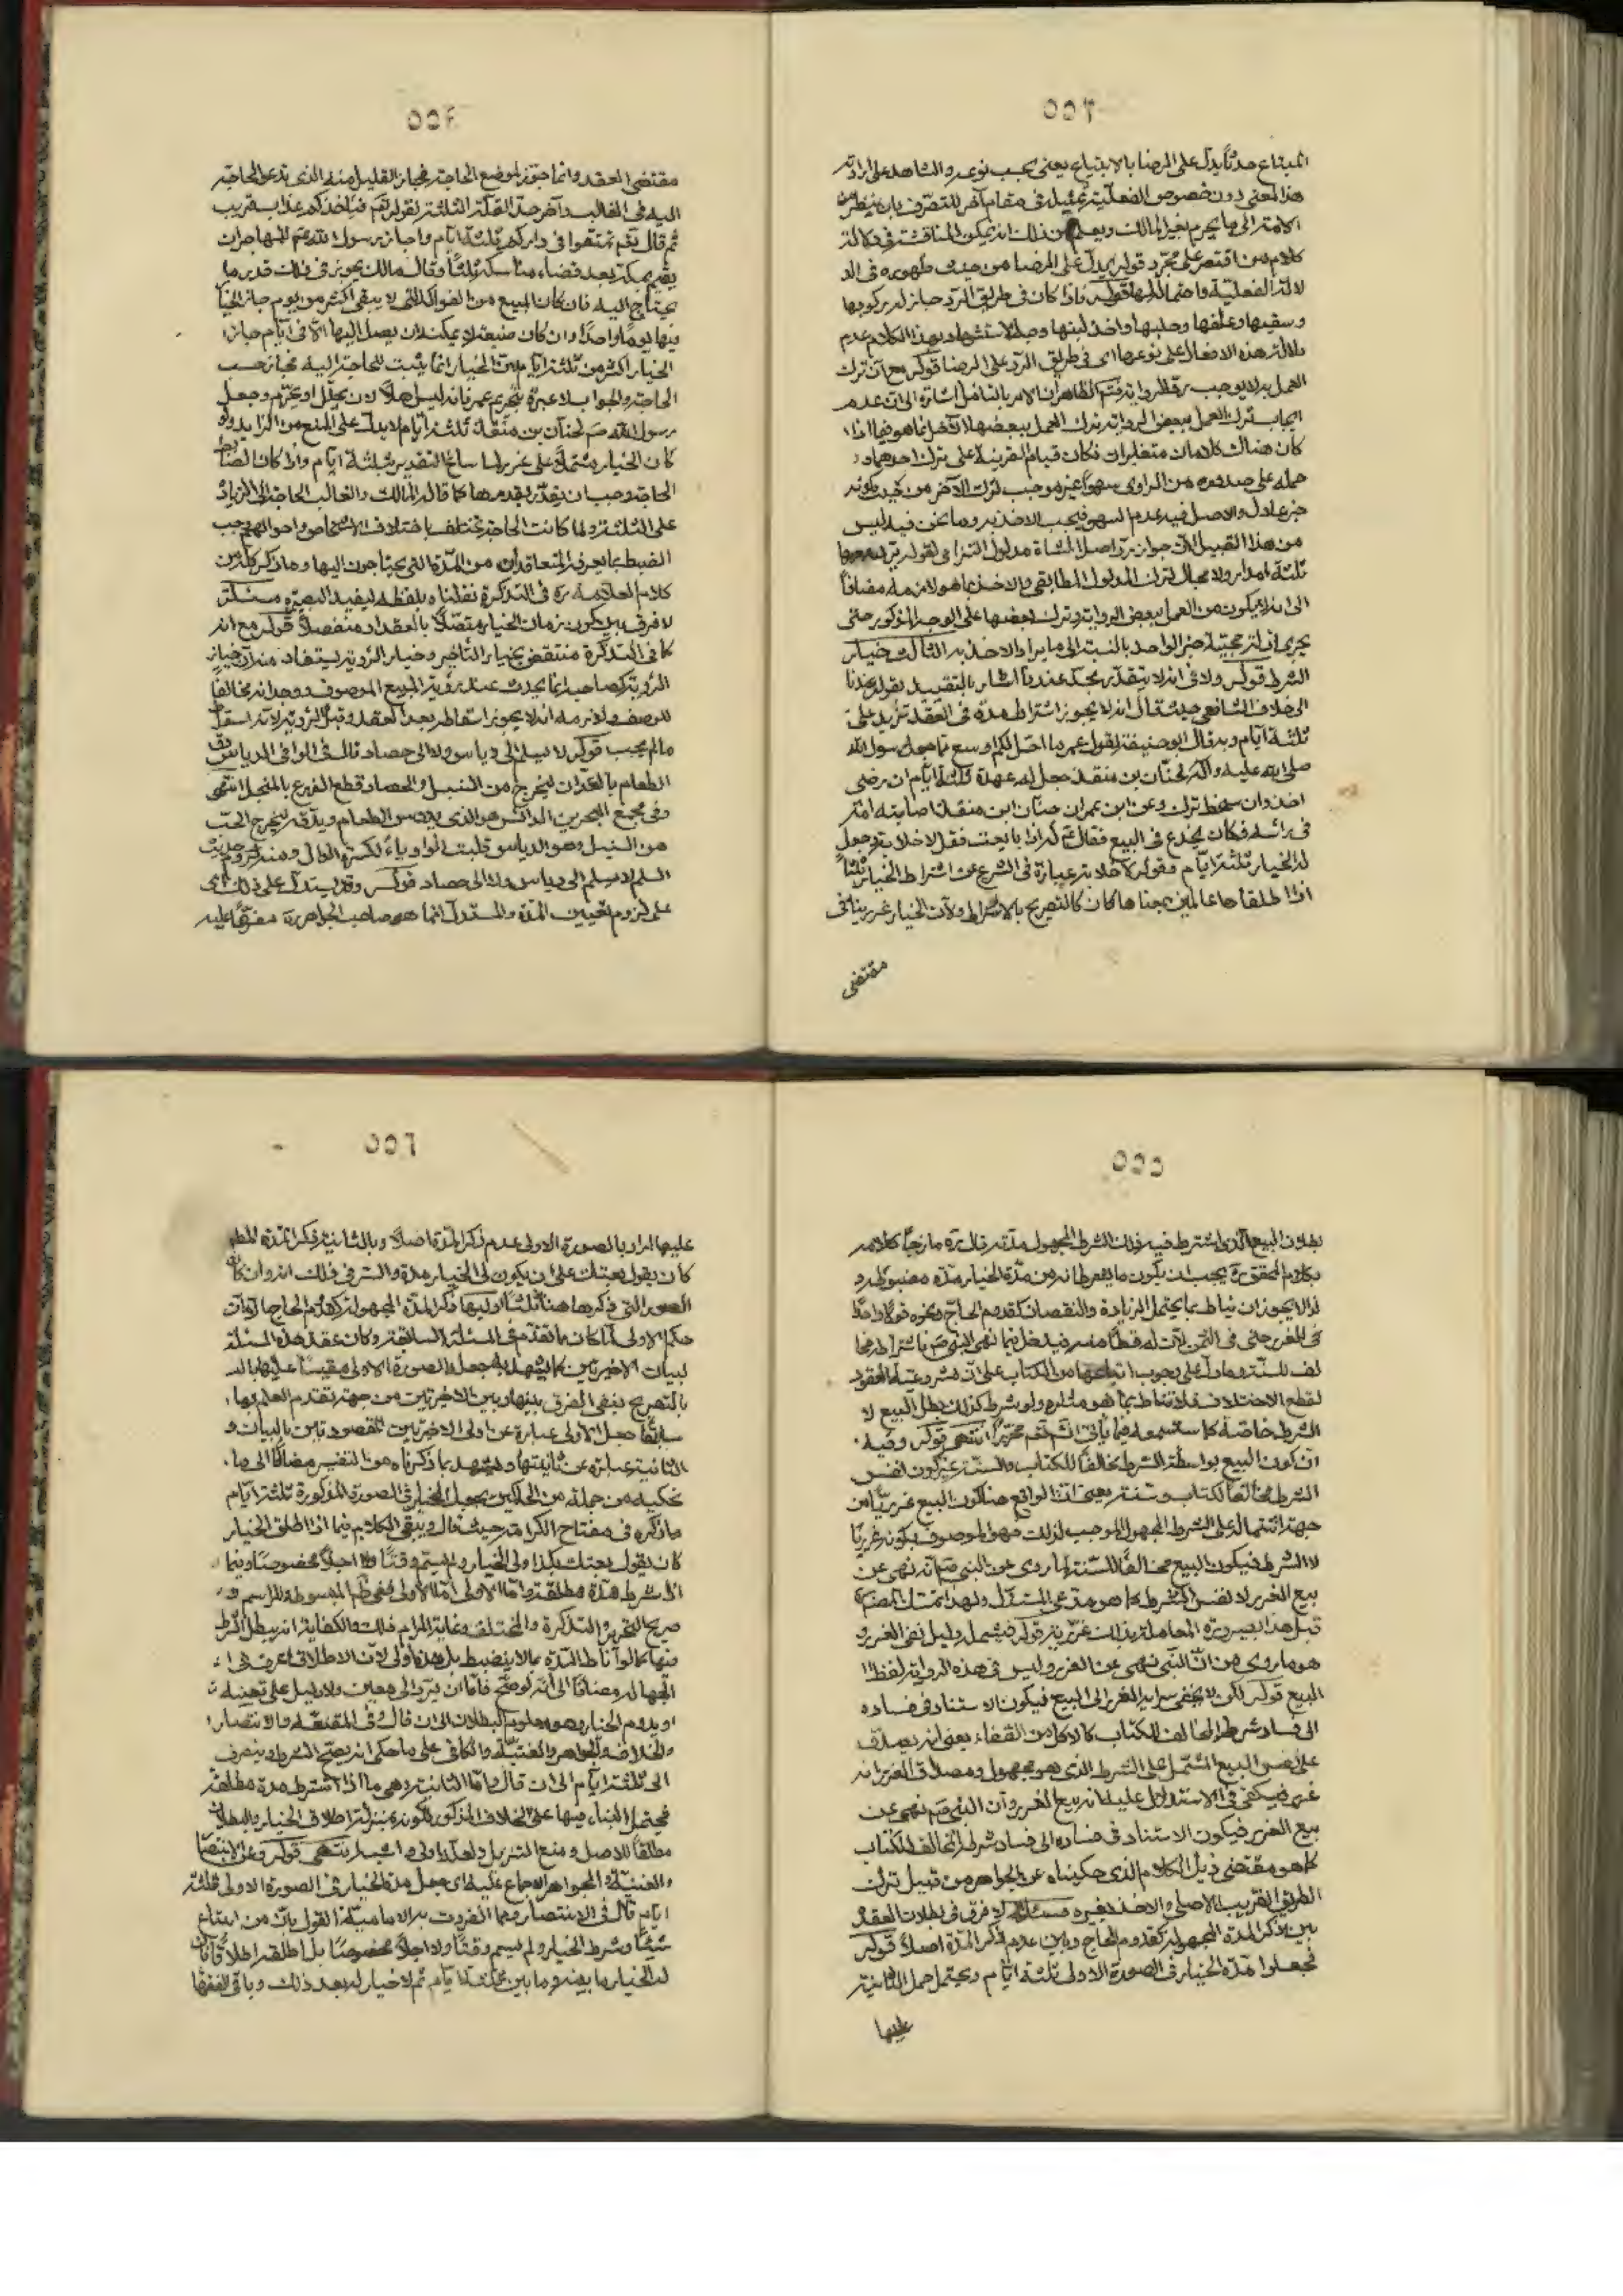 ٥٥٣
المبتاع حدثاً يدل على الرضا بالابتياع يعنى بحسب نوعه والشاهد على ارادة
هذا المعنى دون خصوص الفعلية تمثيله فى مقام آخر للتصرف بان ينظر من
الامة الى ما يحرم لغير المالك ويعلم من ذلك انه يمكن المناقشة فى دلالة
كلام من اقتصر على مجرد قوله يدل على الرضا من حيث ظهوره فى الد
لالة الفعلية واحتماله لها قوله فاذا كان فى طريق الرد جاز له ركوبها
وسقيها وعلفها وحلبها واخذ لبنها وجه الاستشهاد بهذا الكلام عدم
دلالة هذه الافعال على نوعها اى فى طريق الرد على الرضا قوله مع ان ترك
العمل به لا يوجب رد الرواية فتم الظاهر ان الامر بالتامل اشارة الى ان عدم
ايجاب ترك العمل ببعض الرواية ترك العمل ببعضها الآخر انما هو فيما اذا
كان هناك كلامان متغايران فكان قيام القرينة على ترك احدهما و
حمله على صدوره من الراوى سهواً غير موجب لترك الآخر من حيث كونه
خبر عادل والاصل فيه عدم السهو فيجب الاخذ به وما نحن فيه ليس
من هذا القبيل لان جواز رد اصل الشاة مدلول التزامى لقوله يرد معها
ثلثة امداد ولا مجال لترك المدلول المطابقى والاخذ بما هو لازمه مضافاً
الى انه لا يكون من العمل ببعض الرواية وترك بعضها على الوجه المذكور حتى
يجرى ادلة حجية خبر الواحد بالنسبة الى ما يراد الاخذ به الثالث خيار
الشرط قوله ولا فى انه لا يتقدر بحد عندنا اشار بالتقييد بقوله عندنا
الى خلاف الشافعى حيث قال انه لا يجوز اشتراط مدة فى العقد تزيد على
ثلثة ايام وبه قال ابو حنيفة لقول عمر ما اجد لكم اوسع مما جعل رسول الله
صلى الله عليه وآله لحبان بن منقذ جعل له عهدة ثلثة ايام ان رضى
اخذ وان سخط ترك وعن ابن عمر ان حبان ابن منقذ اصابته امة
فى راسه فكان يخدع فى البيع فقال له اذا بايعت فقل لا خلابة وجعل
له الخيار ثلثة ايام وقوله لا خلابة عبارة فى الشرع عن اشتراط الخيار ثلثاً
اذا اطلقاها عالمين بمعناها كان كالتصريح بالاشتراط ولان الخيار غرر ينافى
مقتضى
٥٥٤
مقتضى العقد وانما جوز لموضع الحاجة فجاز القليل منه الذى تدعو الحاجة
اليه فى الغالب وآخر حد القلة الثلثة لقوله تعم فياخذكم عذاب قريب
ثم قال تعم تمتعوا فى داركم ثلثة ايام واجاز رسول الله صم للمهاجر ان
يقيم بمكة بعد قضاء مناسكه ثلثاً وقال مالك يجوز فى ذلك قدر ما
يحتاج اليه فان كان المبيع من الفواكه التى لا يبقى اكثر من يوم جاز الخيار
فيها يوماً واحداً وان كان ضيعة لا يمكنه ان يصل اليها الا فى ايام جاز
الخيار اكثر من ثلثة ايام لان الخيار انما يثبت للحاجة اليه فجاز حسب
الحاجة والجواب لا عبرة بتحريم عمر فانه ليس اهلاً لان يحلل او يحرم وجعل
رسول الله صم لحبان بن منقذ ثلثة ايام لا يدل على المنع من الزايد ولو
كان الخيار مشتملاً على غرر لما ساغ التقدير بثلثة ايام واذا كان الضابط
الحاجة وجب ان يقدر بقدرها كما قاله المالك والغالب الحاجة الى الزيادة
على الثلثة ولما كانت الحاجة تختلف باختلاف الاشخاص واحوالهم وجب
الضبط بما يعرفه المتعاقدان من المدة التى يحتاجون اليها وما ذكر كله من
كلام العلامة ره فى التذكرة نقلناه بلفظه ليفيد البصيرة مسئلة
لا فرق بين كون زمان الخيار متصلاً بالعقد او منفصلاً قوله مع انه
كما فى التذكرة منتقض بخيار التاخير وخيار الرؤية يستفاد منه ان خيار
الرؤية كصاحبه انما يحدث عند رؤية المبيع الموصوف ووجدانه مخالفاً
للوصف ولازمه انه لا يجوز اسقاطه بعد العقد وقبل الرؤية لانه اسقاط
ما لم يجب قوله لا يسلم الى دياس ولا الى حصاد قال فى الوافى الدياس دق
الطعام بالفدان ليخرج من السنبل والحصاد قطع الزرع بالمنجل انتهى
وفى مجمع البحرين الدائس هو الذى يدوس الطعام ويدقه ليخرج الحب
من السنبل وهو الدياس قلبت الواو ياء لكسرة الدال ومنه حديث
السلم لا يسلم الى دياس ولا الى حصاد قوله وقد يستدل على ذلك اى
على لزوم تعيين المدة والمستدل انما هو صاحب الجواهر ره مفرعاً عليه
٥٥٥
بطلان البيع الذى اشترط فيه ذلك الشرط المجهول مدته قال ره مازجاً كلامه
بكلام المحقق ره يجب ان يكون ما يشترطانه من مدة الخيار مدة مضبوطة و
لذا لا يجوز ان يناط بما يحتمل الزيادة والنقصان كقدوم الحاج ونحوه قولاً واحداً
للغرر حتى فى الثمن لان له قسطاً منه فيدخل فيما نهى النبى صم باشتراطه مخا
لف للسنة وما دل على وجوب اتباعها من الكتاب على ان مشروعية العقود
لقطع الاختلاف فلا تناط بما هو مثار له ولو شرط كذلك بطل البيع لا
الشرط خاصة كما ستسمعه فيما ياتى انشم تعم محرراً انتهى قوله وفيه
ان كون البيع بواسطة الشرط مخالفاً للكتاب والسنة غير كون نفس
الشرط مخالفاً لكتاب وسنة يعنى ان الواقع هنا كون البيع غررياً من
جهة اشتماله على الشرط المجهول الموجب لذلك فهو الموصوف بكونه غررياً
لا الشرط فيكون البيع مخالفاً للسنة لما روى عن النبى صم انه نهى عن
بيع الغرر لا نفس الشرط كما هو مدعى المستدل ولهذا تمثل المصنف
قبل هذا بصيرورة المعاملة بذلك غررية قوله فيشمله دليل نفى الغرر و
هو ما روى من ان النبى نهى عن الغرر وليس فى هذه الرواية لفظ
البيع قوله لكن لا يخفى سراية الغرر الى البيع فيكون الاستناد فى فساده
الى فساد شرطه المخالف للكتاب كالاكل من القفا يعنى انه يصدق
على نفس البيع المشتمل على الشرط الذى هو مجهول ومصداق الغرر انه
غرر فيكفى فى الاستدلال عليه انه بيع الغرر وان النبى صم نهى عن
بيع الغرر فيكون الاستناد فى فساده الى فساد شرطه المخالف للكتاب
كما هو مقتضى ذيل الكلام الذى حكيناه عن الجواهر من قبيل ترك
الطريق القريب الاصلى والاخذ بغيره مسئلة لا فرق فى بطلان العقد
بين ذكر المدة المجهولة كقدوم الحاج وبين عدم ذكر المدة اصلاً قوله
فجعلوا مدة الخيار فى الصورة الاولى ثلثة ايام ويحتمل حمل الثانية
عليها
٥٥٦
عليها اراد بالصورة الاولى عدم ذكر المدة اصلاً وبالثانية ذكر المدة المطلقة
كان يقول بعتك على ان يكون لى الخيار مدة والسر فى ذلك انه وان كان
الصور التى ذكرها هنا ثلثاً اوليها ذكر المدة المجهولة كقدوم الحاج الا ان
حكم الاولى لما كان مما تقدم فى المسئلة السابقة وكان عقد هذه المسئلة
لبيان الاخيرتين كما يشهد به جعل الصورة الاولى مقيساً عليها بالد
بالتصريح بنفى الفرق بينها وبين الاخيرتين من جهة تقدم العلم بها
سابقاً جعل الاولى عبارة عن اولى الاخيرتين المقصودتين بالبيان و
الثانية عبارة عن ثانيتها ويشهد بما ذكرناه من التفسير مضافاً الى ما
نحكيه من جملة من الحاكين بجعل الخيار فى الصورة المذكورة ثلثة ايام
ما ذكره فى مفتاح الكرامة حيث قال وبقى الكلام فيما اذا اطلق الخيار
كان يقول بعتك بكذا ولى الخيار ولم يسم وقتاً ولا اجلاً مخصوصاً وبما
اذا شرط مدة مطلقة اما الاولى ففى ظاهر المبسوط والمراسم و
صريح التحرير والتذكرة والمختلف وغاية المرام والكفاية انه يبطل الشرط
فيها كما لو اناط المدة بما لا ينضبط بل هذا اولى لان الاطلاق اعرف فى
الجهالة مضافاً الى انه لو صح فاما ان يرد الى معين ولا دليل على تعيينه
او يدوم الخيار وهو معلوم البطلان الى ان قال وفى المقنعة والانتصار
والخلاف والجواهر والغنية والكافى على ما حكى انه يصح الشرط وينصرف
الى ثلثة ايام الى ان قال واما الثانية وهى ما اذا اشترط مدة مطلقة
فيحتمل البناء فيها على الخلاف المذكور لكونه بمنزلة اطلاق الخيار والبطلان
مطلقاً للاصل ومنع التنزيل ولعله اولى واشبه انتهى قوله وعن الانتصار
والغنية والجواهر الاجماع عليه اى جعل مدة الخيار فى الصورة الاولى ثلثة
ايام قال فى الانتصار ومما انفردت به الامامية القول بان من ابتاع
شيئاً وشرط الخيار ولم يسم وقتاً ولا اجلاً مخصوصاً بل اطلقه اطلاقاً فان
له الخيار ما بينه وما بين ثلثة ايام ثم لا خيار له بعد ذلك وباقى الفقهاء